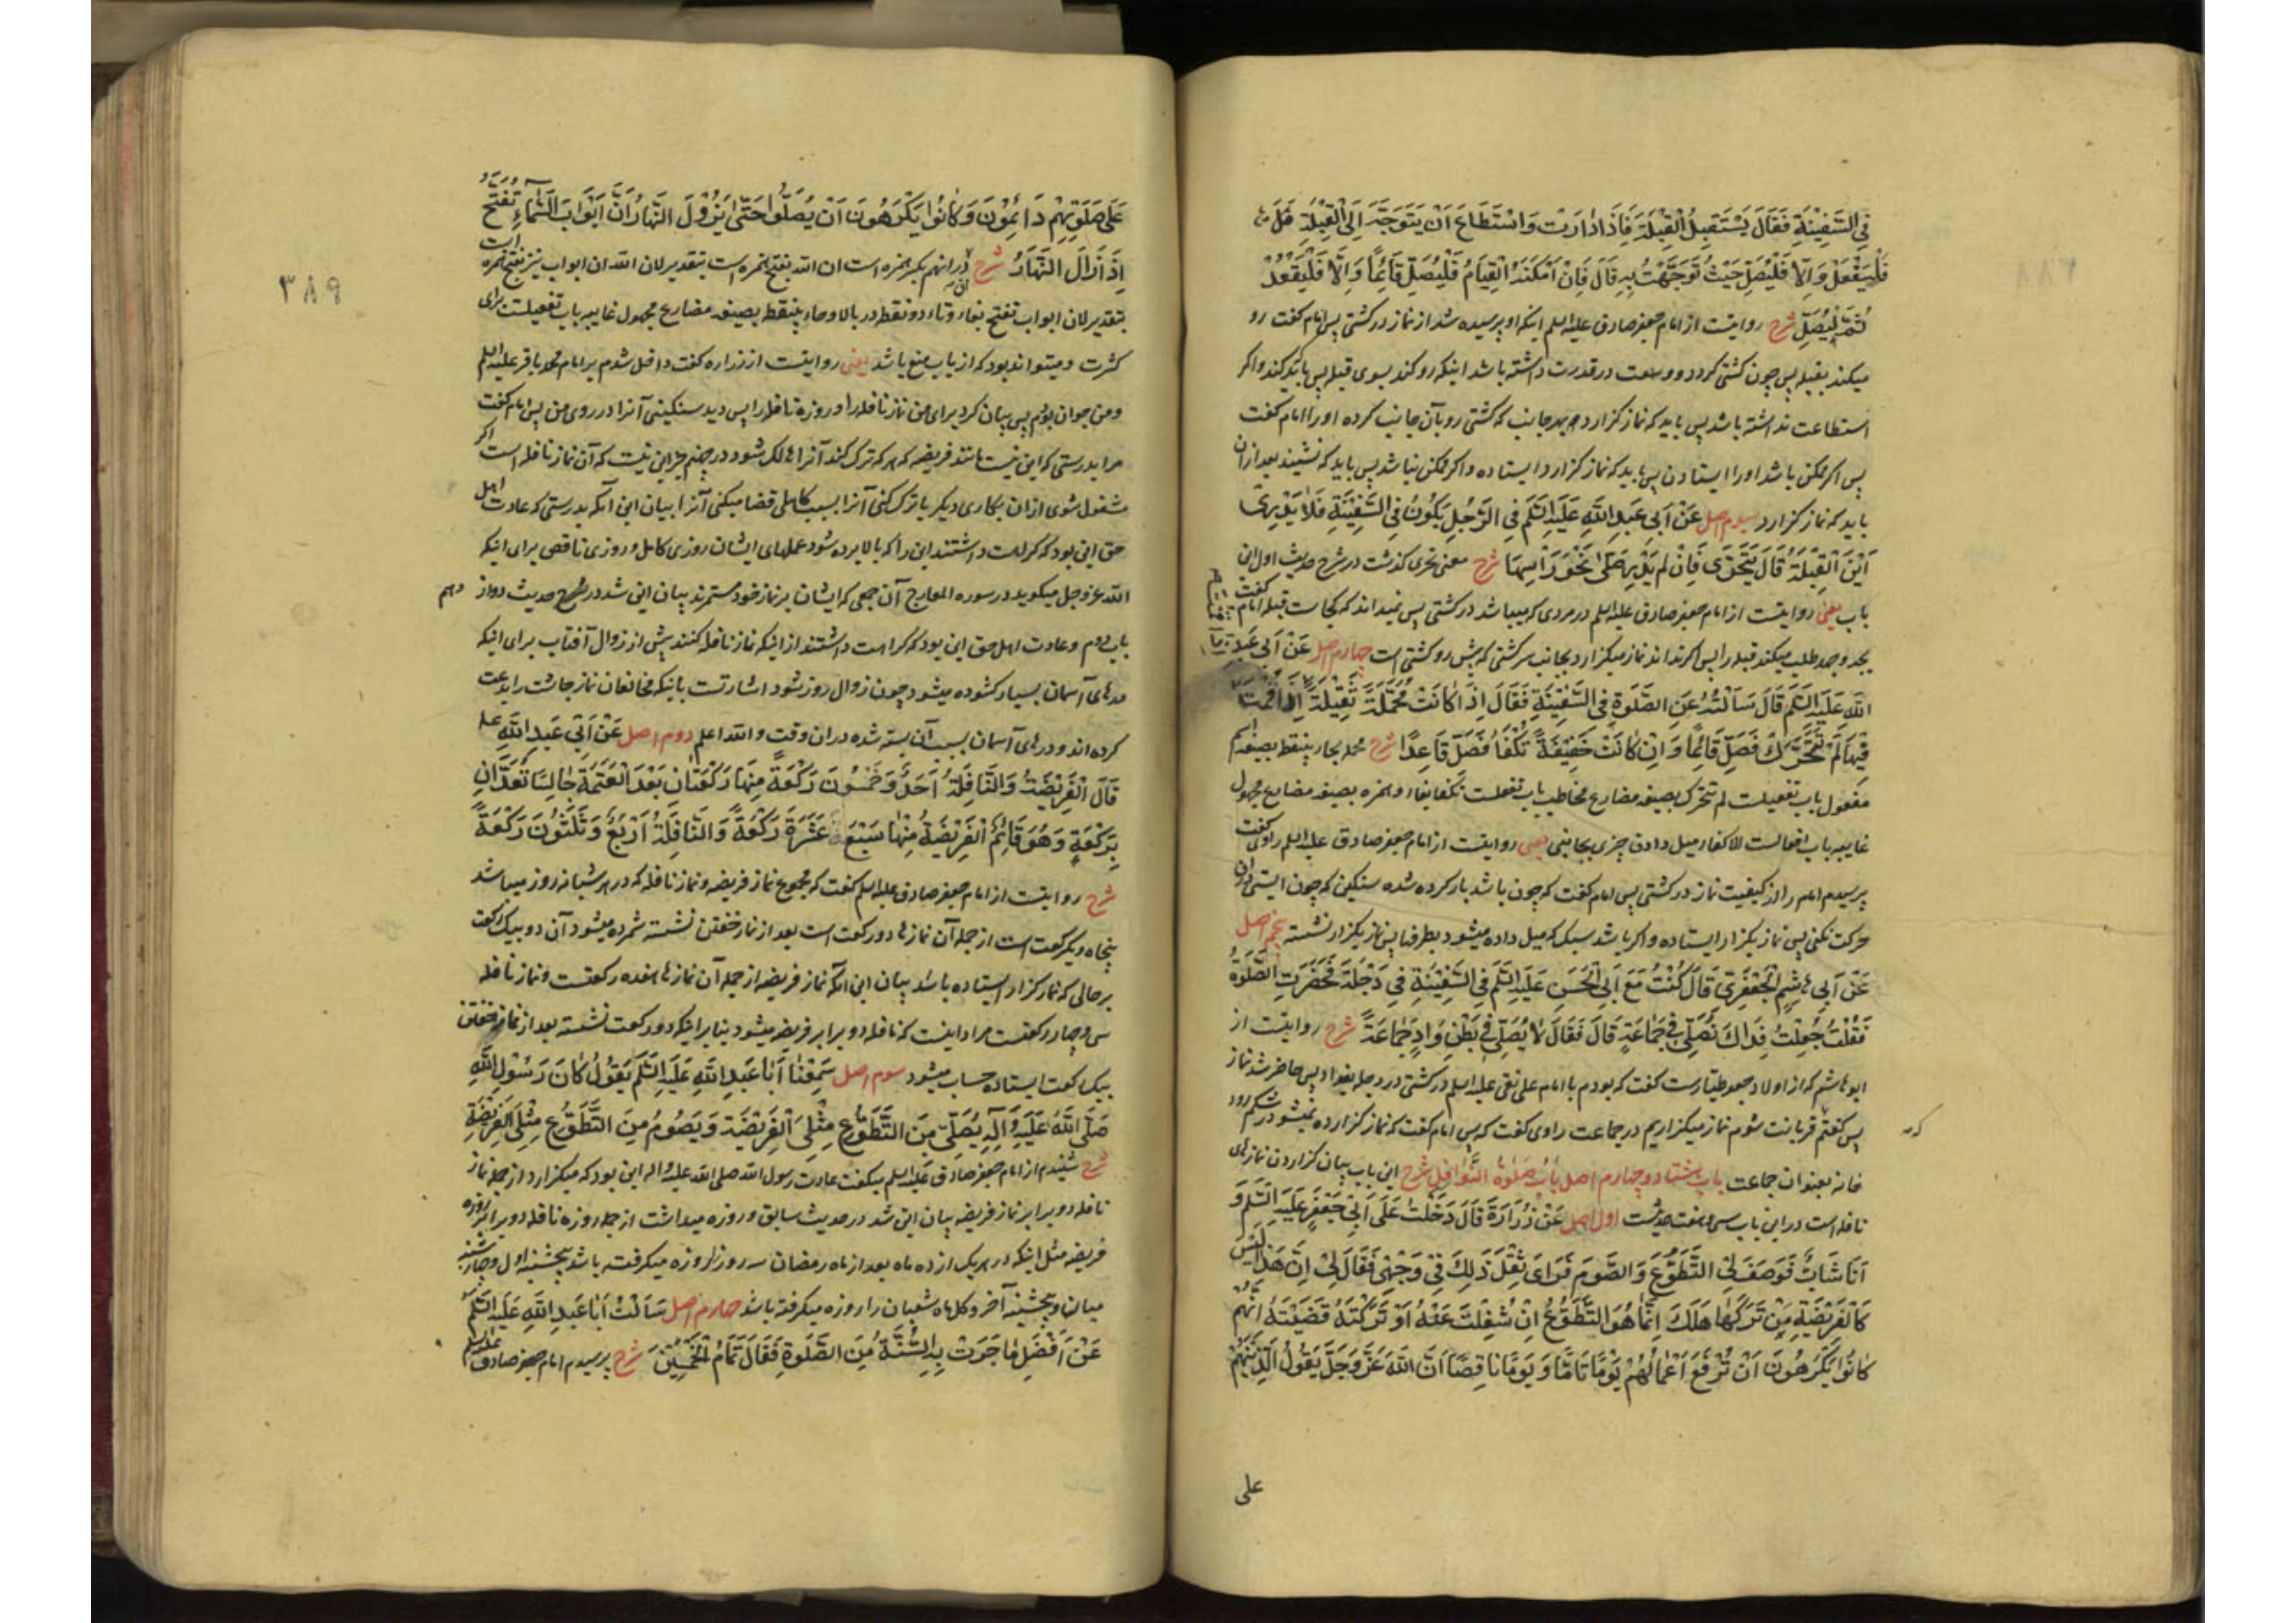 فِي السَّفِينَةِ فَقَالَ يَسْتَقْبِلُ الْقِبْلَةَ فَإِذَا دَارَتْ وَاسْتَطَاعَ اَنْ يَتَوَجَّهَ اِلَى الْقِبْلَةِ
فَلْيَفْعَلْ وَاِلَّا فَلْيُصَلِّ حَيْثُ تَوَجَّهَتْ بِهِ قَالَ فَاِنْ اَمْكَنَهُ الْقِيَامُ فَلْيُصَلِّ قَائِمًا وَاِلَّا فَلْيَقْعُدْ
ثُمَّ لْيُصَلِّ شرح روایتست از امام جعفر صادق علیه السلم اینکه او پرسیده شد از نماز در کشتی پس امام گفت رو
میکند بقبله پس چون کشتی گردد و وسعت در قدرت داشته باشد اینکه رو کند بسوی قبله پس باید کند و اگر
استطاعت نداشته باشد پس باید که نماز گزارد بهر جانب که کشتی رو بآن جانب کرده او را امام گفت
پس اگر ممکن باشد او را ایستادن پس باید که نماز گزارد ایستاده و اگر ممکن نباشد پس باید که نشیند بعد ازان
باید که نماز گزارد سوم اصل عَنْ اَبِي عَبْدِ اللَّهِ عَلَيْهِ السَّلَم فِي الرَّجُلِ يَكُونُ فِي السَّفِينَةِ فَلَا يَدْرِي
اَيْنَ الْقِبْلَةُ قَالَ يَتَحَرَّى فَاِنْ لَمْ يَدْرِ صَلَّى نَحْوَ رَأْسِهَا شرح معنی تحری گذشت در شرح حدیث اول این
باب یعنی روایتست از امام جعفر صادق علیه السلم در مردی که میباشد در کشتی پس نمیداند که کجاست قبله امام گفت
بجد و جهد طلب میکند قبله را پس اگر نداند نماز میگزارد بجانب سر کشتی که پیش رو کشتی است چهارم اصل عَنْ اَبِي عَبْدِ
اللَّهِ عَلَيْهِ السَّلَم قَالَ سَأَلْتُهُ عَنِ الصَّلٰوةِ فِي السَّفِينَةِ فَقَالَ اِذَا كَانَتْ مُحَمَّلَةً ثَقِيلَةً اِذَا قُمْتَ
فِيهَا لَمْ تَتَحَرَّكْ فَصَلِّ قَائِمًا وَاِنْ كَانَتْ خَفِيفَةً تُكْفَأُ فَصَلِّ قَاعِدًا شرح محمله بحاء بینقطه بصیغه اسم
مفعول باب تفعیلست لم تتحرک بصیغه مضارع مخاطب باب تفعلست تکفا بفاء و همزه بصیغه مضارع مجهول
غایبه باب افعالست الاکفاء میل دادن چیزی بجانبی یعنی روایتست از امام جعفر صادق علیه السلم راوی گفت
پرسیدم امام را از کیفیت نماز در کشتی پس امام گفت که چون باشد بار کرده شده سنگین که چون ایستی دران
حرکت نکنی پس نماز بگزار ایستاده و اگر باشد سبک که میل داده میشود بطرفها پس نماز بگزار نشسته پنجم اصل
عَنْ اَبِي هَاشِمٍ الْجَعْفَرِيِّ قَالَ كُنْتُ مَعَ اَبِي الْحَسَنِ عَلَيْهِ السَّلَم فِي السَّفِينَةِ فِي دَجْلَةَ فَحَضَرَتِ الصَّلٰوةُ
فَقُلْتُ جُعِلْتُ فِدَاكَ نُصَلِّي فِي جَمَاعَةٍ قَالَ فَقَالَ لَا يُصَلَّى فِي بَطْنِ وَادٍ جَمَاعَةً شرح روایتست از
ابو هاشم که از اولاد جعفر طیارست گفت که بودم با امام علی نقی علیه السلم در کشتی در دجله بغداد پس حاضر شد نماز
پس گفتم قربانت شوم نماز میگزاریم در جماعت راوی گفت که پس امام گفت که نماز گزارده نمیشود در شکم رود
که
خانه بعنوان جماعت باب هشتاد و چهارم اصل بَابُ صَلٰوةِ النَّوَافِلِ شرح این باب بیان گزاردن نمازهای
نافله است در این باب سی و هفت حدیثست اول اصل عَنْ زُرَارَةَ قَالَ دَخَلْتُ عَلَى اَبِي جَعْفَرٍ عَلَيْهِ السَّلَم وَ
اَنَا شَابٌّ فَوَصَفَ لِيَ التَّطَوُّعَ وَالصَّوْمَ فَرَاَى ثِقْلَ ذَلِكَ فِي وَجْهِي فَقَالَ لِي اِنَّ هَذَا لَيْسَ
كَالْفَرِيضَةِ مَنْ تَرَكَهَا هَلَكَ اِنَّمَا هُوَ التَّطَوُّعُ اِنْ شُغِلْتَ عَنْهُ اَوْ تَرَكْتَهُ قَضَيْتَهُ اِنَّهُمْ
كَانُوا يَكْرَهُونَ اَنْ تُرْفَعَ اَعْمَالُهُمْ يَوْمًا تَامًّا وَيَوْمًا نَاقِصًا اِنَّ اللَّهَ عَزَّ وَجَلَّ يَقُولُ الَّذِينَ هُمْ
علی
۳۸۹
عَلَى صَلٰوتِهِمْ دَائِمُونَ وَكَانُوا يَكْرَهُونَ اَنْ يُصَلُّوا حَتَّى يَزُولَ النَّهَارُ اِنَّ اَبْوَابَ السَّمَاءِ تُفَتَّحُ
اِذَا زَالَ النَّهَارُ شرح ان در انهم بکسر همزه است ان الله بفتح همزه است بتقدیر لان الله ان ابواب نیز بفتح همزه است
بتقدیر لان ابواب تفتح بفاء و تاء دو نقطه در بالا و حاء بینقطه بصیغه مضارع مجهول غایبه باب تفعیلست برای
کثرت و میتواند بود که از باب منع باشد یعنی روایتست از زراره گفت داخل شدم بر امام محمد باقر علیه السلم
و من جوان بودم پس بیان کرد برای من نماز نافله را و روزه نافله را پس دید سنگینی آنرا در روی من پس امام گفت
مرا بدرستی که این نیست مانند فریضه که هر که ترک کند آنرا هالک شود در جهنم جز این نیست که آن نماز نافله است اگر
مشغول شوی ازان بکاری دیگر یا ترک کنی آنرا بسبب کاهلی قضا میکنی آنرا بیان این آنکه بدرستی که عادت اهل
حق این بود که کراهت داشتند این را که بالا برده شود عملهای ایشان روزی کامل و روزی ناقص برای اینکه
الله عز و جل میگوید در سوره المعارج آن جمعی که ایشان بر نماز خود مستمرند بیان این شد در شرح حدیث دوازدهم
باب دوم و عادت اهل حق این بود که کراهت داشتند از اینکه نماز نافله کنند پیش از زوال آفتاب برای اینکه
درهای آسمان بسیار گشوده میشود چون زوال روز شود اشارتست باینکه مخالفان نماز چاشت را بدعت
کرده اند و درهای آسمان بسبب آن بسته شده دران وقت و الله اعلم دوم اصل عَنْ اَبِي عَبْدِ اللَّهِ عله
قَالَ الْفَرِيضَةُ وَالنَّافِلَةُ اَحَدٌ وَخَمْسُونَ رَكْعَةً مِنْهَا رَكْعَتَانِ بَعْدَ الْعَتَمَةِ جَالِسًا تُعَدَّانِ
بِرَكْعَةٍ وَهُوَ قَائِمٌ الْفَرِيضَةُ مِنْهَا سَبْعَةَ عَشْرَةَ رَكْعَةً وَالنَّافِلَةُ اَرْبَعٌ وَثَلٰثُونَ رَكْعَةً
شرح روایتست از امام جعفر صادق علیه السلم گفت که مجموع نماز فریضه و نماز نافله که در هر شبانه روز میباشد
پنجاه و یک رکعت است از جمله آن نمازها دو رکعت است بعد از نماز خفتن نشسته شمرده میشود آن دو بیک رکعت
بر حالی که نماز گزار ایستاده باشد بیان این آنکه نماز فریضه از جمله آن نمازها هفده رکعتست و نماز نافله
سی و چهار رکعتست مراد اینست که نافله دو برابر فریضه میشود بنابر اینکه دو رکعت نشسته بعد از نماز خفتن
بیک رکعت ایستاده حساب میشود سوم اصل سَمِعْنَا اَبَا عَبْدِ اللَّهِ عَلَيْهِ السَّلَم يَقُولُ كَانَ رَسُولُ اللَّهِ
صَلَّى اللَّهُ عَلَيْهِ وَآلِهِ يُصَلِّي مِنَ التَّطَوُّعِ مِثْلَيِ الْفَرِيضَةِ وَيَصُومُ مِنَ التَّطَوُّعِ مِثْلَيِ الْفَرِيضَةِ
شرح شنیدم از امام جعفر صادق علیه السلم میگفت عادت رسول الله صلی الله علیه و اله این بود که میگزارد از جمله نماز
نافله دو برابر نماز فریضه بیان این شد در حدیث سابق و روزه میداشت از جمله روزه نافله دو برابر روزه
فریضه مثل اینکه در هر یک از ده ماه بعد از ماه رمضان سه روز را روزه میگرفته باشد پنجشنبه اول و چهارشنبه
میانها و پنجشنبه آخر و کل ماه شعبان را روزه میگرفته باشد چهارم اصل سَاَلْتُ اَبَا عَبْدِ اللَّهِ عَلَيْهِ السَّلَم
عَنْ اَفْضَلِ مَا جَرَتْ بِهِ السُّنَّةُ مِنَ الصَّلٰوةِ فَقَالَ تَمَامُ الْخَمْسِينَ شرح پرسیدم امام جعفر صادق علیه السلم